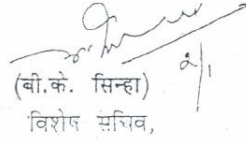 2/1
(बी.के. सिन्हा)
विशेष सचिव,